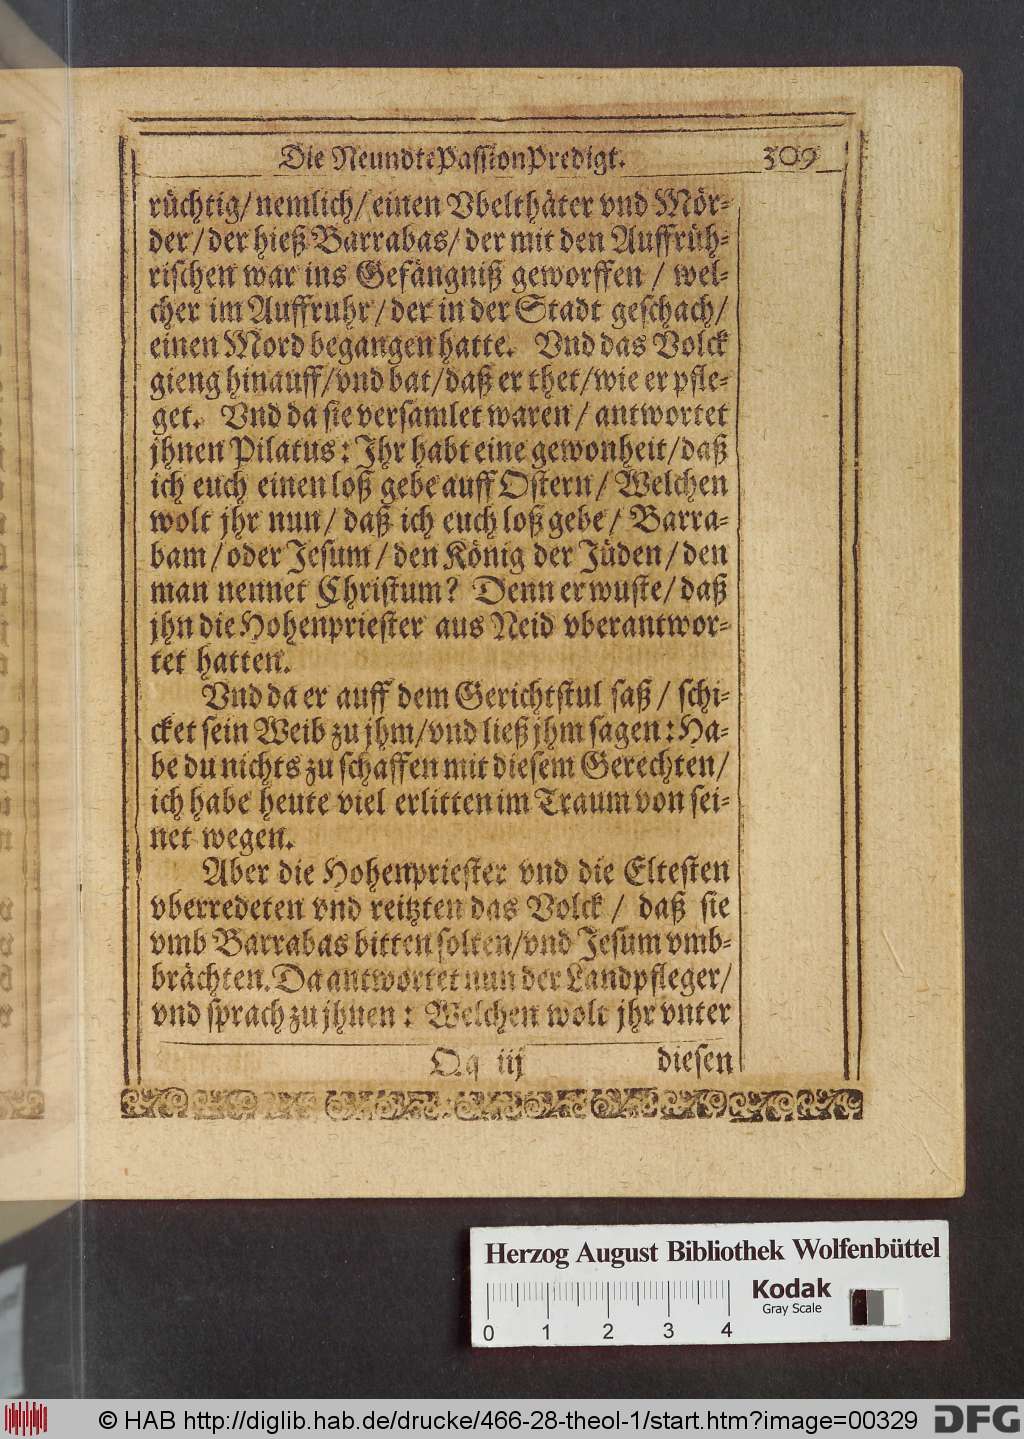 Die Neundte Passion Predigt. 309
rüchtig/ nemlich/ einen Vbelthäter vnd Mör-
der/ der hieß Barrabas/ der mit den Auffrüh-
rischen war ins Gefängniß geworffen / wel-
cher im Auffruhr/ der in der Stadt geschach/
einen Mord begangen hatte. Vnd das Volck
gieng hinauff/ vnd bat/ daß er thet/ wie er pfle-
get. Vnd da sie versamlet waren/ antwortet
jhnen Pilatus: Ihr habt eine gewonheit/ daß
ich euch einen loß gebe auff Ostern/ Welchen
wolt jhr nun/ daß ich euch loß gebe/ Barra-
bam/ oder Jesum/ den König der Jüden/ den
man nennet Christum? Denn er wuste/ daß
jhn die Hohenpriester aus Neid vberantwor-
tet hatten.
Vnd da er auff dem Gerichtstul saß/ schi-
cket sein Weib zu jhm/ vnd ließ jhm sagen: Ha-
be du nichts zu schaffen mit diesem Gerechten/
ich habe heute viel erlitten im Traum von sei-
net wegen.
Aber die Hohenpriester vnd die Eltesten
vberredeten vnd reitzten das Volck / daß sie
vmb Barrabas bitten solten/ vnd Jesum vmb-
brächten. Da antwortet nun der Landpfleger/
vnd sprach zu jhnen: Welchen wolt jhr vnter
Qq iij diesen
Herzog August Bibliothek Wolfenbüttel
Kodak
Gray Scale
0 1 2 3 4
© HAB http://diglib.hab.de/drucke/466-28-theol-1/start.htm?image=00329 DFG